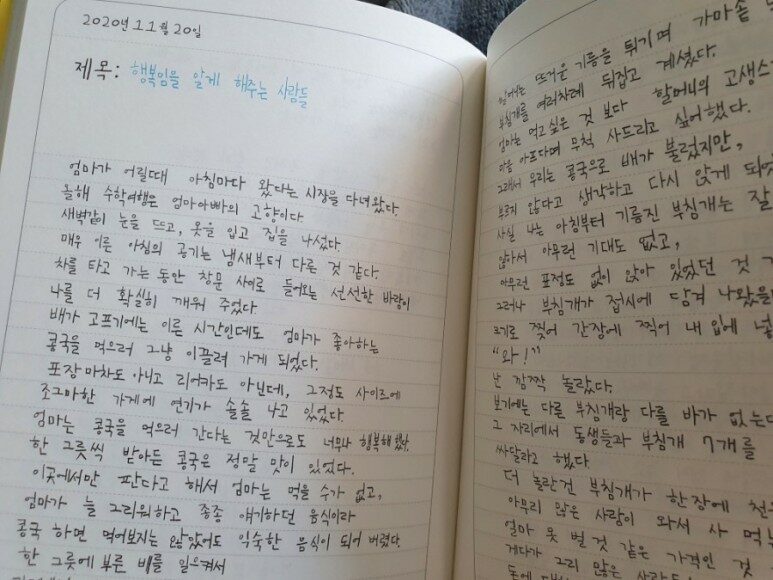 2020년 11월 20일
제목: 행복임을 알게 해주는 사람들
엄마가 어릴때 아침마다 왔다는 시장을 다녀왔다.
올해 수학여행은 엄마아빠의 고향이다
새벽같이 눈을 뜨고, 옷을 입고 집을 나섰다
매우 이른 아침의 공기는 냄새부터 다른 것 같다.
차를 타고 가는 동안 창문 사이로 들어오는 선선한 바람이
나를 더 확실히 깨워 주었다
배가 고프기에는 이른 시간인데도 엄마가 좋아하는
콩국을 먹으러 그냥 이끌려 가게 되었다.
포장마차도 아니고 리어카도 아닌데, 그정도 사이즈에
조그마한 가게에 연기가 솔솔 나고 있었다.
엄마는 콩국을 먹으러 간다는 것만으로도 너무나 행복해했다.
한 그릇씩 받아든 콩국은 정말 맛이 있었다.
이곳에서만 판다고 해서 엄마는 먹을 수가 없고,
엄마가 늘 그리워하고 종종 얘기하던 음식이라
콩국 하면 먹어보지는 않았어도 익숙한 음식이 되어 버렸다.
한 그릇에 부른 배를 일으켜서
할머니는 뜨거운 기름을 튀기며 가마솥
부침개를 여러차례 뒤집고 계셨다.
엄마는 먹고싶은 것 보다 할머니의 고생스
마음 아프다며 무척 사드리고 싶어했다.
그래서 우리는 콩국으로 배가 불렀지만,
부르지 않다고 생각하고 다시 앉게 되었
사실 나는 아침부터 기름진 부침개는 잘
않아서 아무런 기대도 없고,
아무런 표정도 없이 앉아 있었던 것
그러나 부침개가 접시에 담겨 나왔을
크기로 찢어 간장에 찍어 내 입에 넣
"와!"
난 깜짝 놀랐다.
보기에는 다른 부침개랑 다를 바가 없는데
그 자리에서 동생들과 부침개 7개를
싸달라고 했다
더 놀란건 부침개가 한장에 천
아무리 많은 사람이 와서 사 먹는
얼마 못 벌 것 같은 가격인 것
게다가 그리 많은 사람